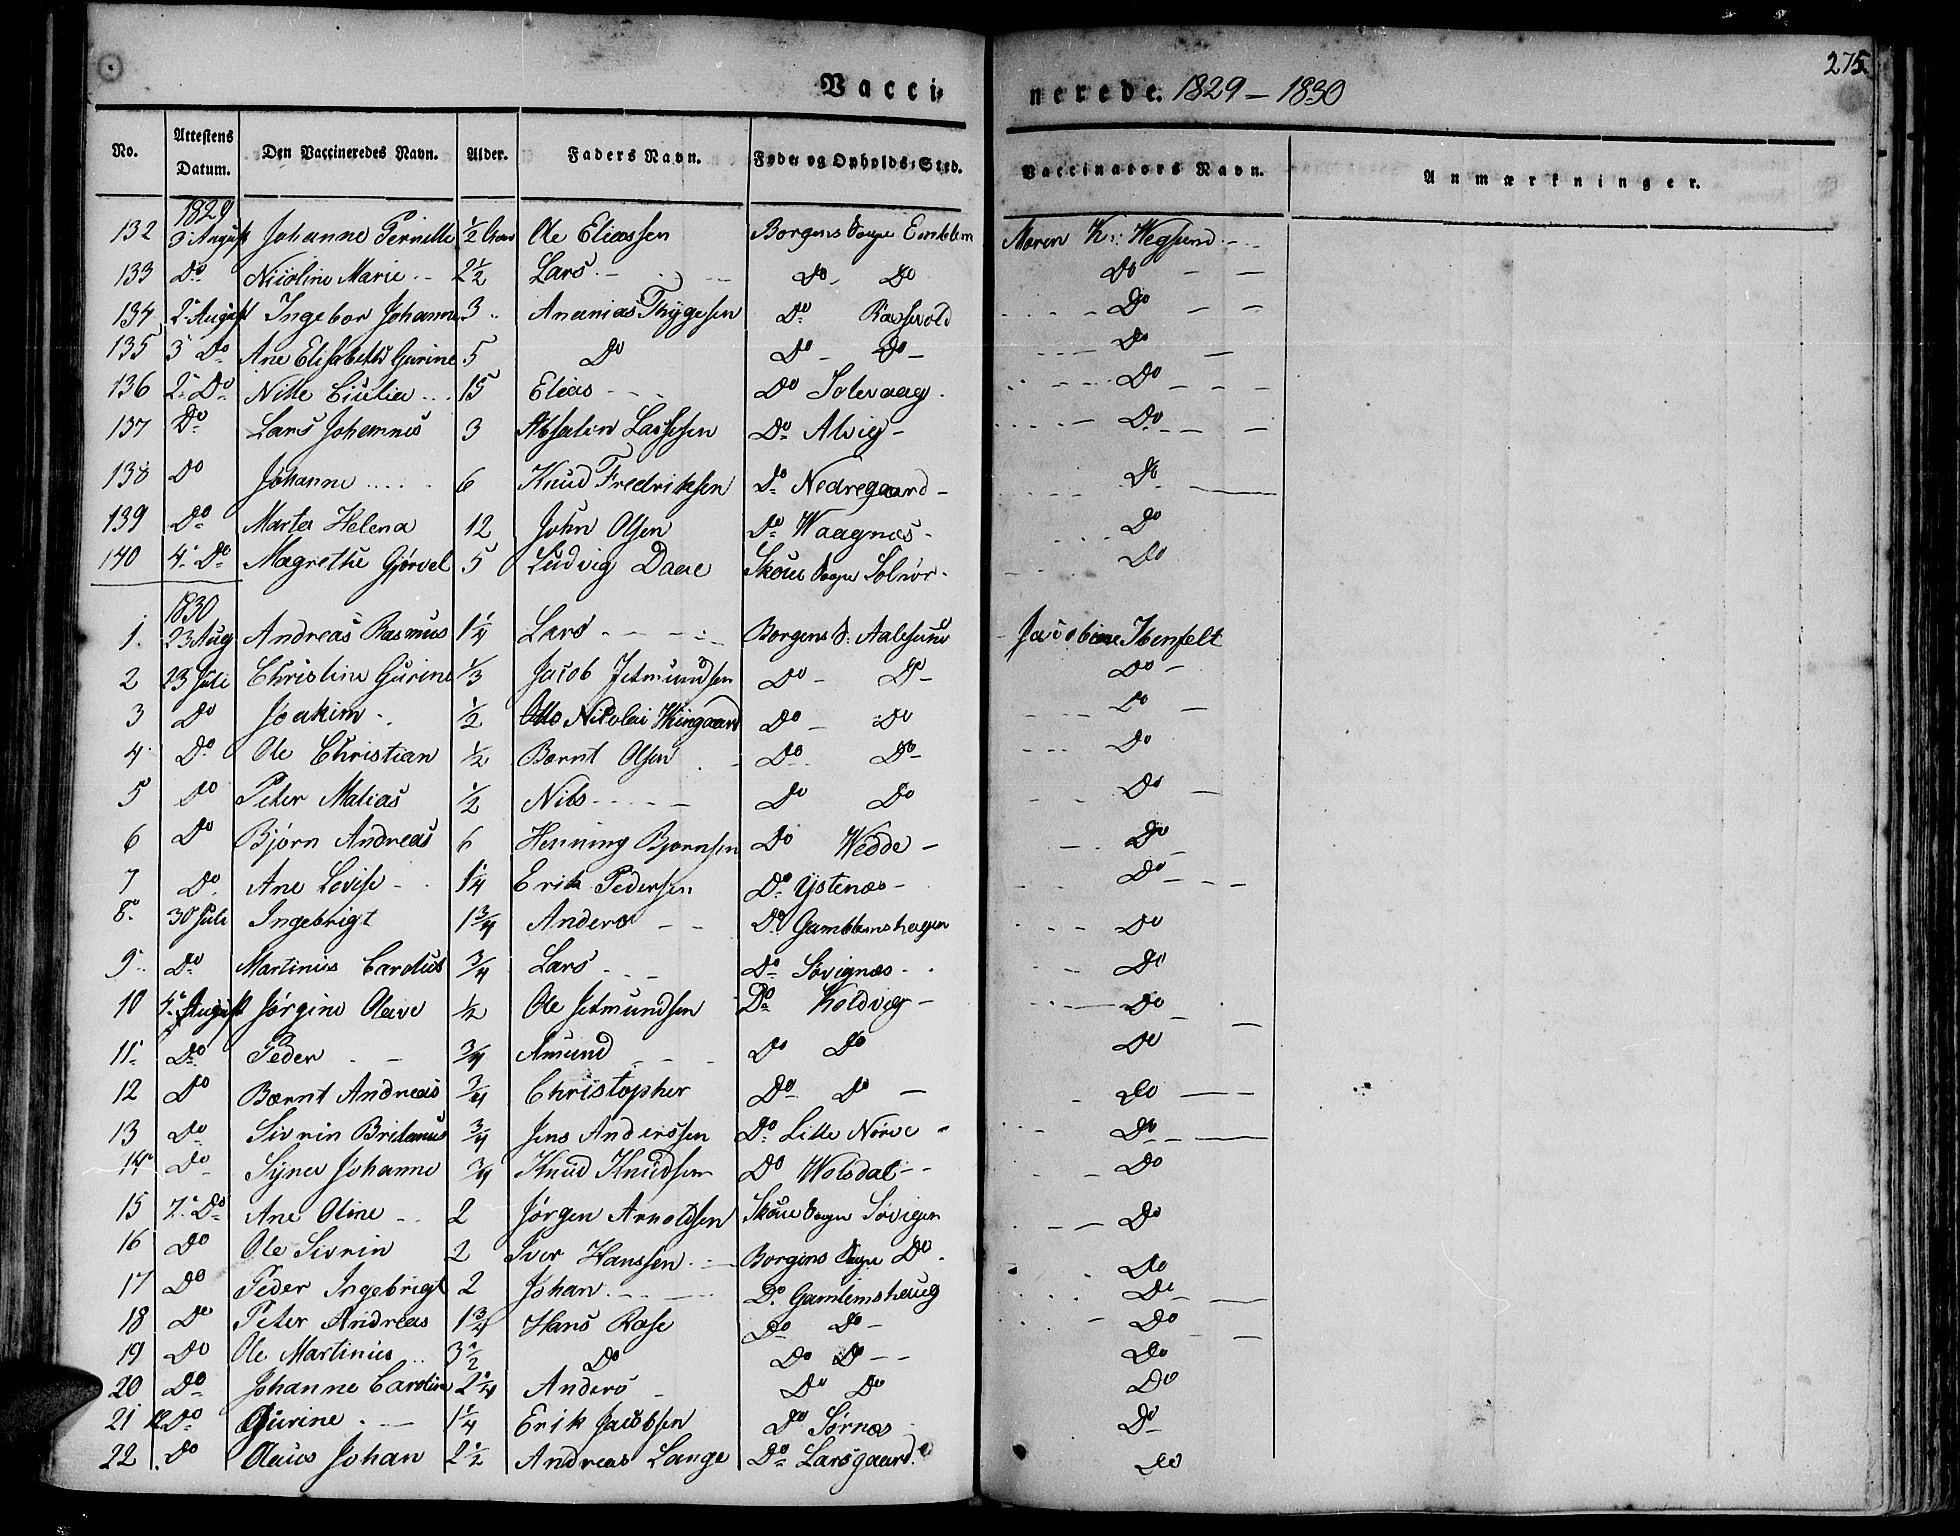 275
Vacci-
nerede. 1829 – 1830
No. Attestens Datum. Den Vaccineredes Navn. Alder. Faders Navn. Føde- og Opholds-Sted. Vaccinators Navn. Anmærkninger.
1829
132 3 August Johanne Pernille ½ Aar Ole Eliassen Borgens Sogn Emblem Maren K: Hegsund
133 Do Nicoline Marie 2½ Lars Do Do Do
134 2 August Ingebor Johanne 3 Ananias Thygesen Do Do
135 3 Do Ane Elisabeth Gurine 5 Do Do Do Do
136 2 Do Nille Giulia 15 Elias Do Solevaag Do
137 Do Lars Johannes 3 Absalon Lassesen Do Alvig Do
138 Do Johanne 6 Knud Fredriksen Do Nedregaard Do
139 Do Marta Helena 12 John Olsen Do Waagnæs Do
140 4 Do Magrethe Gjørvel 5 Ludvig Daae Skoue Sogn Solnør Do
1830
1. 23 Aug Andreas Rasmus 1¼ Lars Borgens S: Aalesund Jacobine Ibenfelt
2 23 Juli Christine Gurine ⅓ Jacob Jetmundsen Do Do Do
3 Do Joakim ½ Otto Nicolai Do Do Do
4 Do Ole Christian ½ Bernt Olsen Do Do Do
5 Do Peter Matias ½ Nils Do Do Do
6 Do Bjørn Andreas 6 Henning Bjørnsen Do Wedde Do
7 Do Ane Lovise 1¼ Erik Pedersen Do Ystenæs Do
8 30 Juli Ingebrigt 1¾ Anders Do Gamblemshagen Do
9 Do Martinus Carolus ¾ Lars Do Søvignæs Do
10 4 August Jørgine Oleve ½ Ole Jetmundsen Do Koldvig Do
11 Do Peder ¾ Amund Do Do Do
12 Do Bernt Andreas ¾ Christopher Do Do Do
13 Do Sivrin Britanus ¾ Jens Anderssen Do Lille Nørve Do
14 Do Syner Johanne ¾ Knud Knudsen Do Wolsdal Do
15 7 Do Ane Oline 2 Jørgen Arnoldsen Skoue Sogn Søvigen Do
16 Do Ole Sivrin 2 Iver Hanssen Borgens Sogn Do Do
17 Do Peder Ingebrigt 2 Johan Do Gamlemshaug Do
18 Do Peter Andreas 1¾ Hans Rose Do Do Do
19 Do Ole Martinus 3½ Do Do Do Do
20 Do Johanne Caroline 2¼ Anders Do Do Do
21 Do Gurine 1¼ Erik Jacobsen Do Sørnæs Do
22 Do Claus Johan 2½ Andreas Lange Do Larsgaard Do